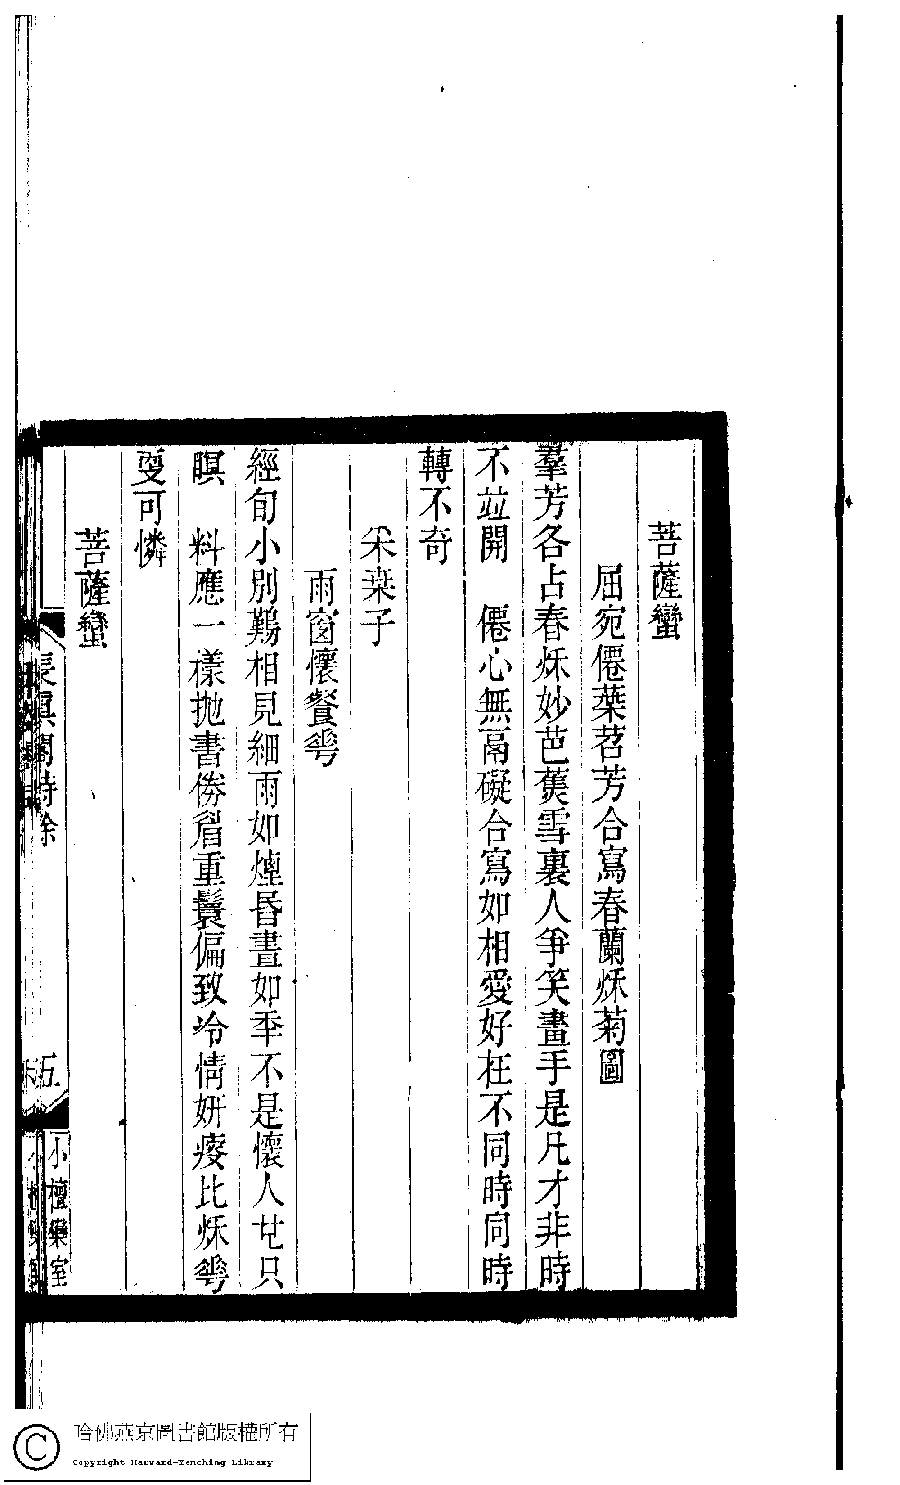 菩薩蠻
屈宛僊葉苕芳合寫春蘭秌菊圖
羣芳各占春秌妙芭蕉雪裏人爭笑畫手是凡才非時
不竝開　僊心無鬲礙合寫如相愛好在不同時同時
轉不奇
采桒子
雨窗懷餐蕚
經旬小別鷄相見細雨如煙昏晝如秊不是懷人廿只
瞑　料應一樣抛書倦眉重鬟偏致冷情妍痠比秌蕚
更可憐
菩薩蠻
長眞閣詩餘
五
小檀欒室
哈佛燕京圖書館版權所有
Copyright Harvard-Yenching Library